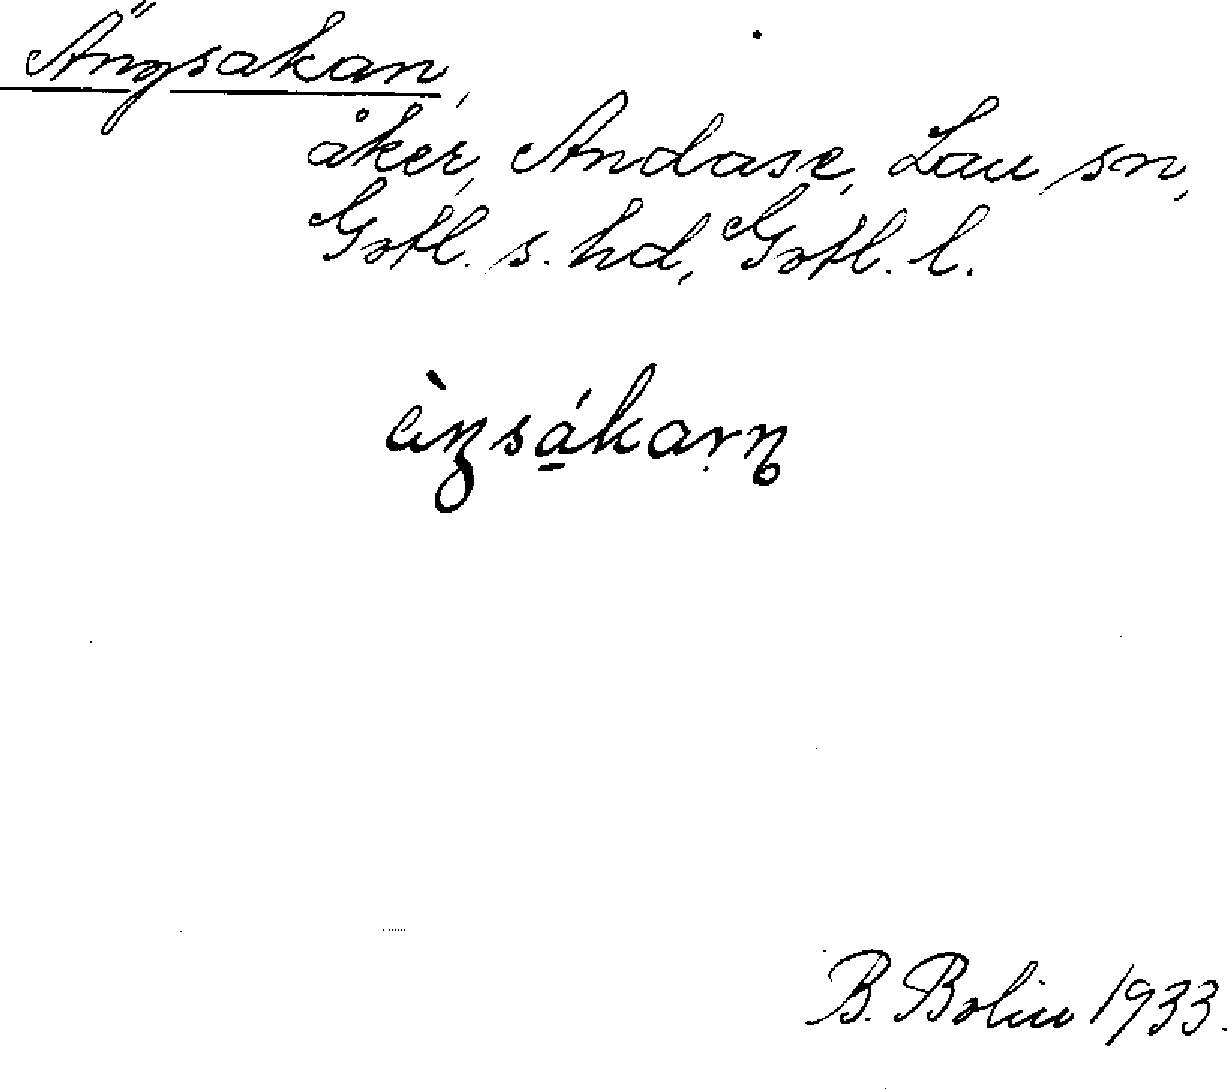 Ängsakan,
åker, Andase, Lau sn,
Gotl. s. hd, Gotl. l.
B. Bolin 1933.